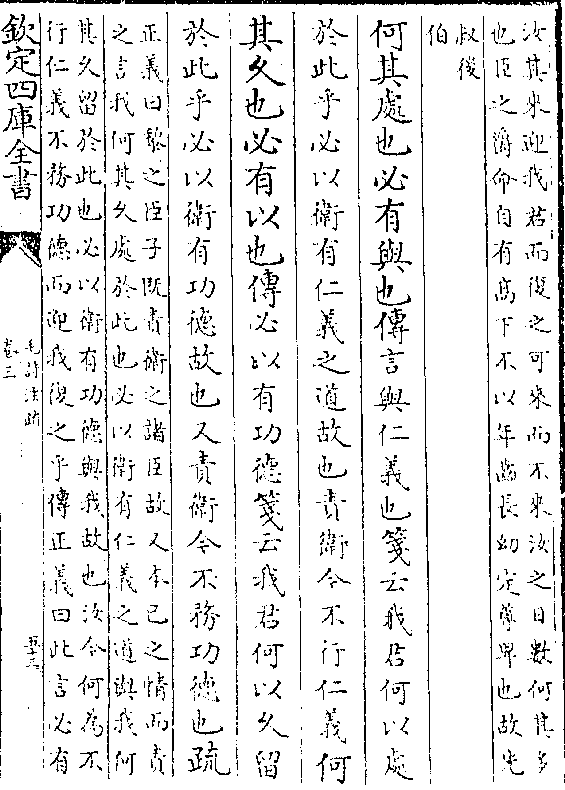 汝其來迎我君而復之可來而不來汝之日數何其多
也臣之爵命自有高下不以年齒長幼定尊卑也故先
叔後
伯
何其處也必有與也傳言與仁義也箋云我君何以處
於此乎必以衛有仁義之道故也責衛今不行仁義何
其久也必有以也傳必以有功德箋云我君何以久留
於此乎必以衛有功德故也又責衛今不務功德也疏
正義曰黎之臣子既責衛之諸臣故又本己之情而責
之言我何其久處於此也必以衛有仁義之道與我何
其久留於此也必以衛有功德與我故也汝今何為不
行仁義不務功德而迎我復之乎傳正義曰此言必有
欽定四庫全書
毛詩注疏
卷三
五十三